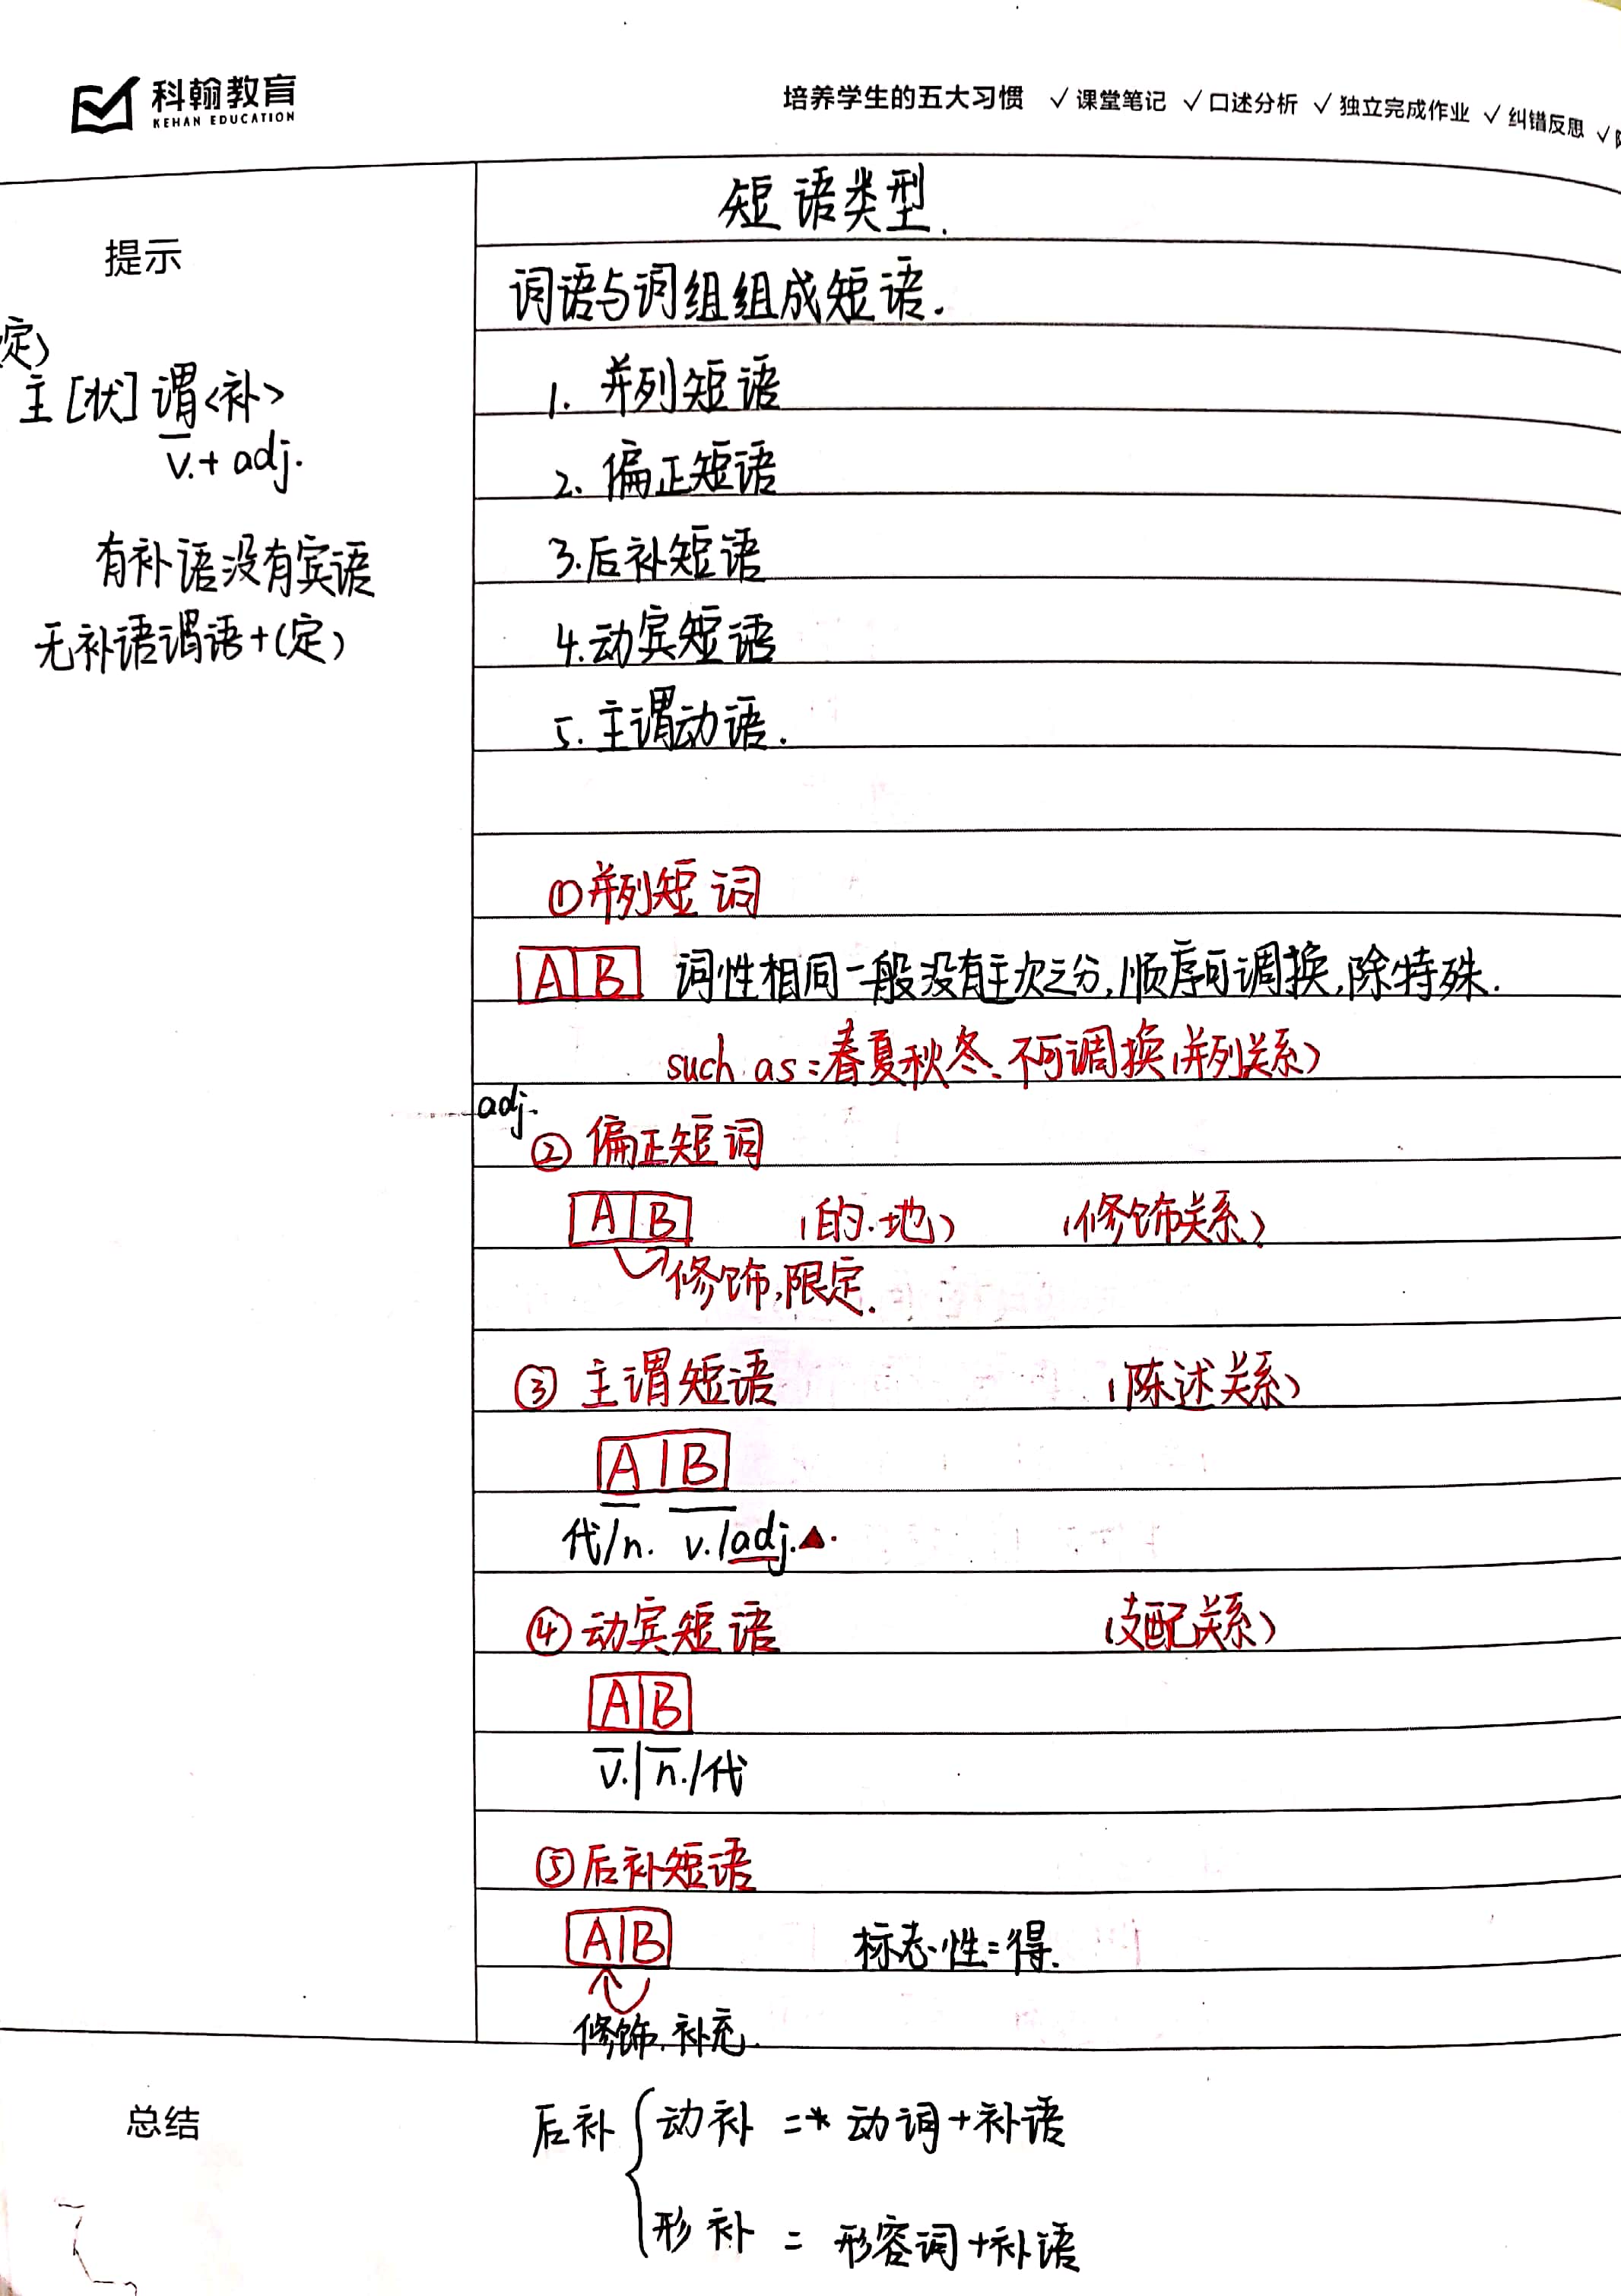 科翰教育
KEHAN EDUCATION
培养学生的五大习惯 ✓课堂笔记 ✓口述分析 ✓独立完成作业 ✓纠错反思 ✓
提示
定)
主[状]谓<补>
v.+adj.
有补语没有宾语
无补语谓语+(定)
短语类型.
词语与词组组成短语.
1. 并列短语
2. 偏正短语
3.后补短语
4.动宾短语
5.主谓动语.
①并列短词
A|B 词性相同一般没有主次之分,顺序可调换,除特殊.
such as:春夏秋冬.不可调换(并列关系)
adj.
②偏正短词
A|B (的.地) (修饰关系)
修饰,限定.
③ 主谓短语 (陈述关系)
A|B
代/n. v./adj.▲.
④动宾短语 (支配关系)
A|B
v.|n./代
⑤后补短语
A|B 标志性=得.
修饰.补充.
总结
后补{动补 =* 动词+补语
形补 = 形容词+补语